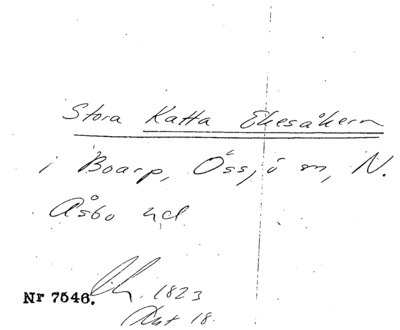 Stora Katta Ekesåkern
i Boarp, Össjö sn, N.
Åsbo hd
Nr 7546.
1823
Akt 18.